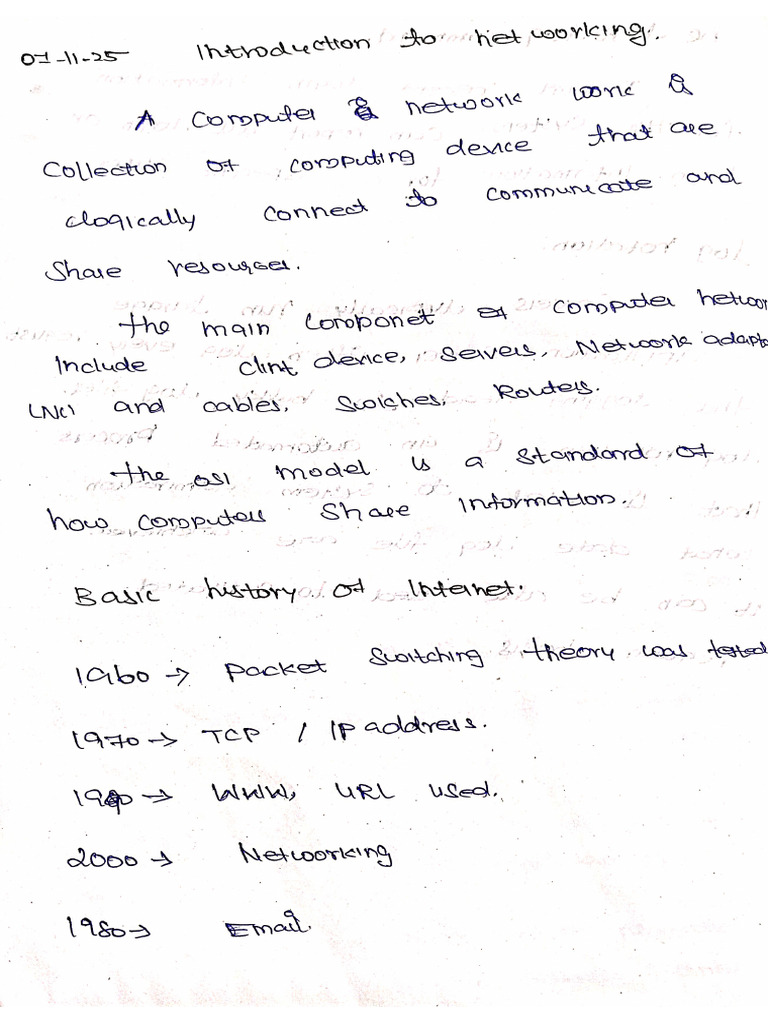 07-11-25 Introduction to networking.
A computer network work is
Collection of computing device that are
clogically connect to communicate and
Share resourses.
the main Componet of computer networ
Include clint device, servers, Network adapt
(NC) and cables, Swiches, Routers.
the OSI model is a standard of
how computers share information.
Basic history of Internet.
1960 → Packet switching theory was tested
1970 → TCP / IP address.
1990 → WWW, URL used.
2000 → Networking
1980 → Email.